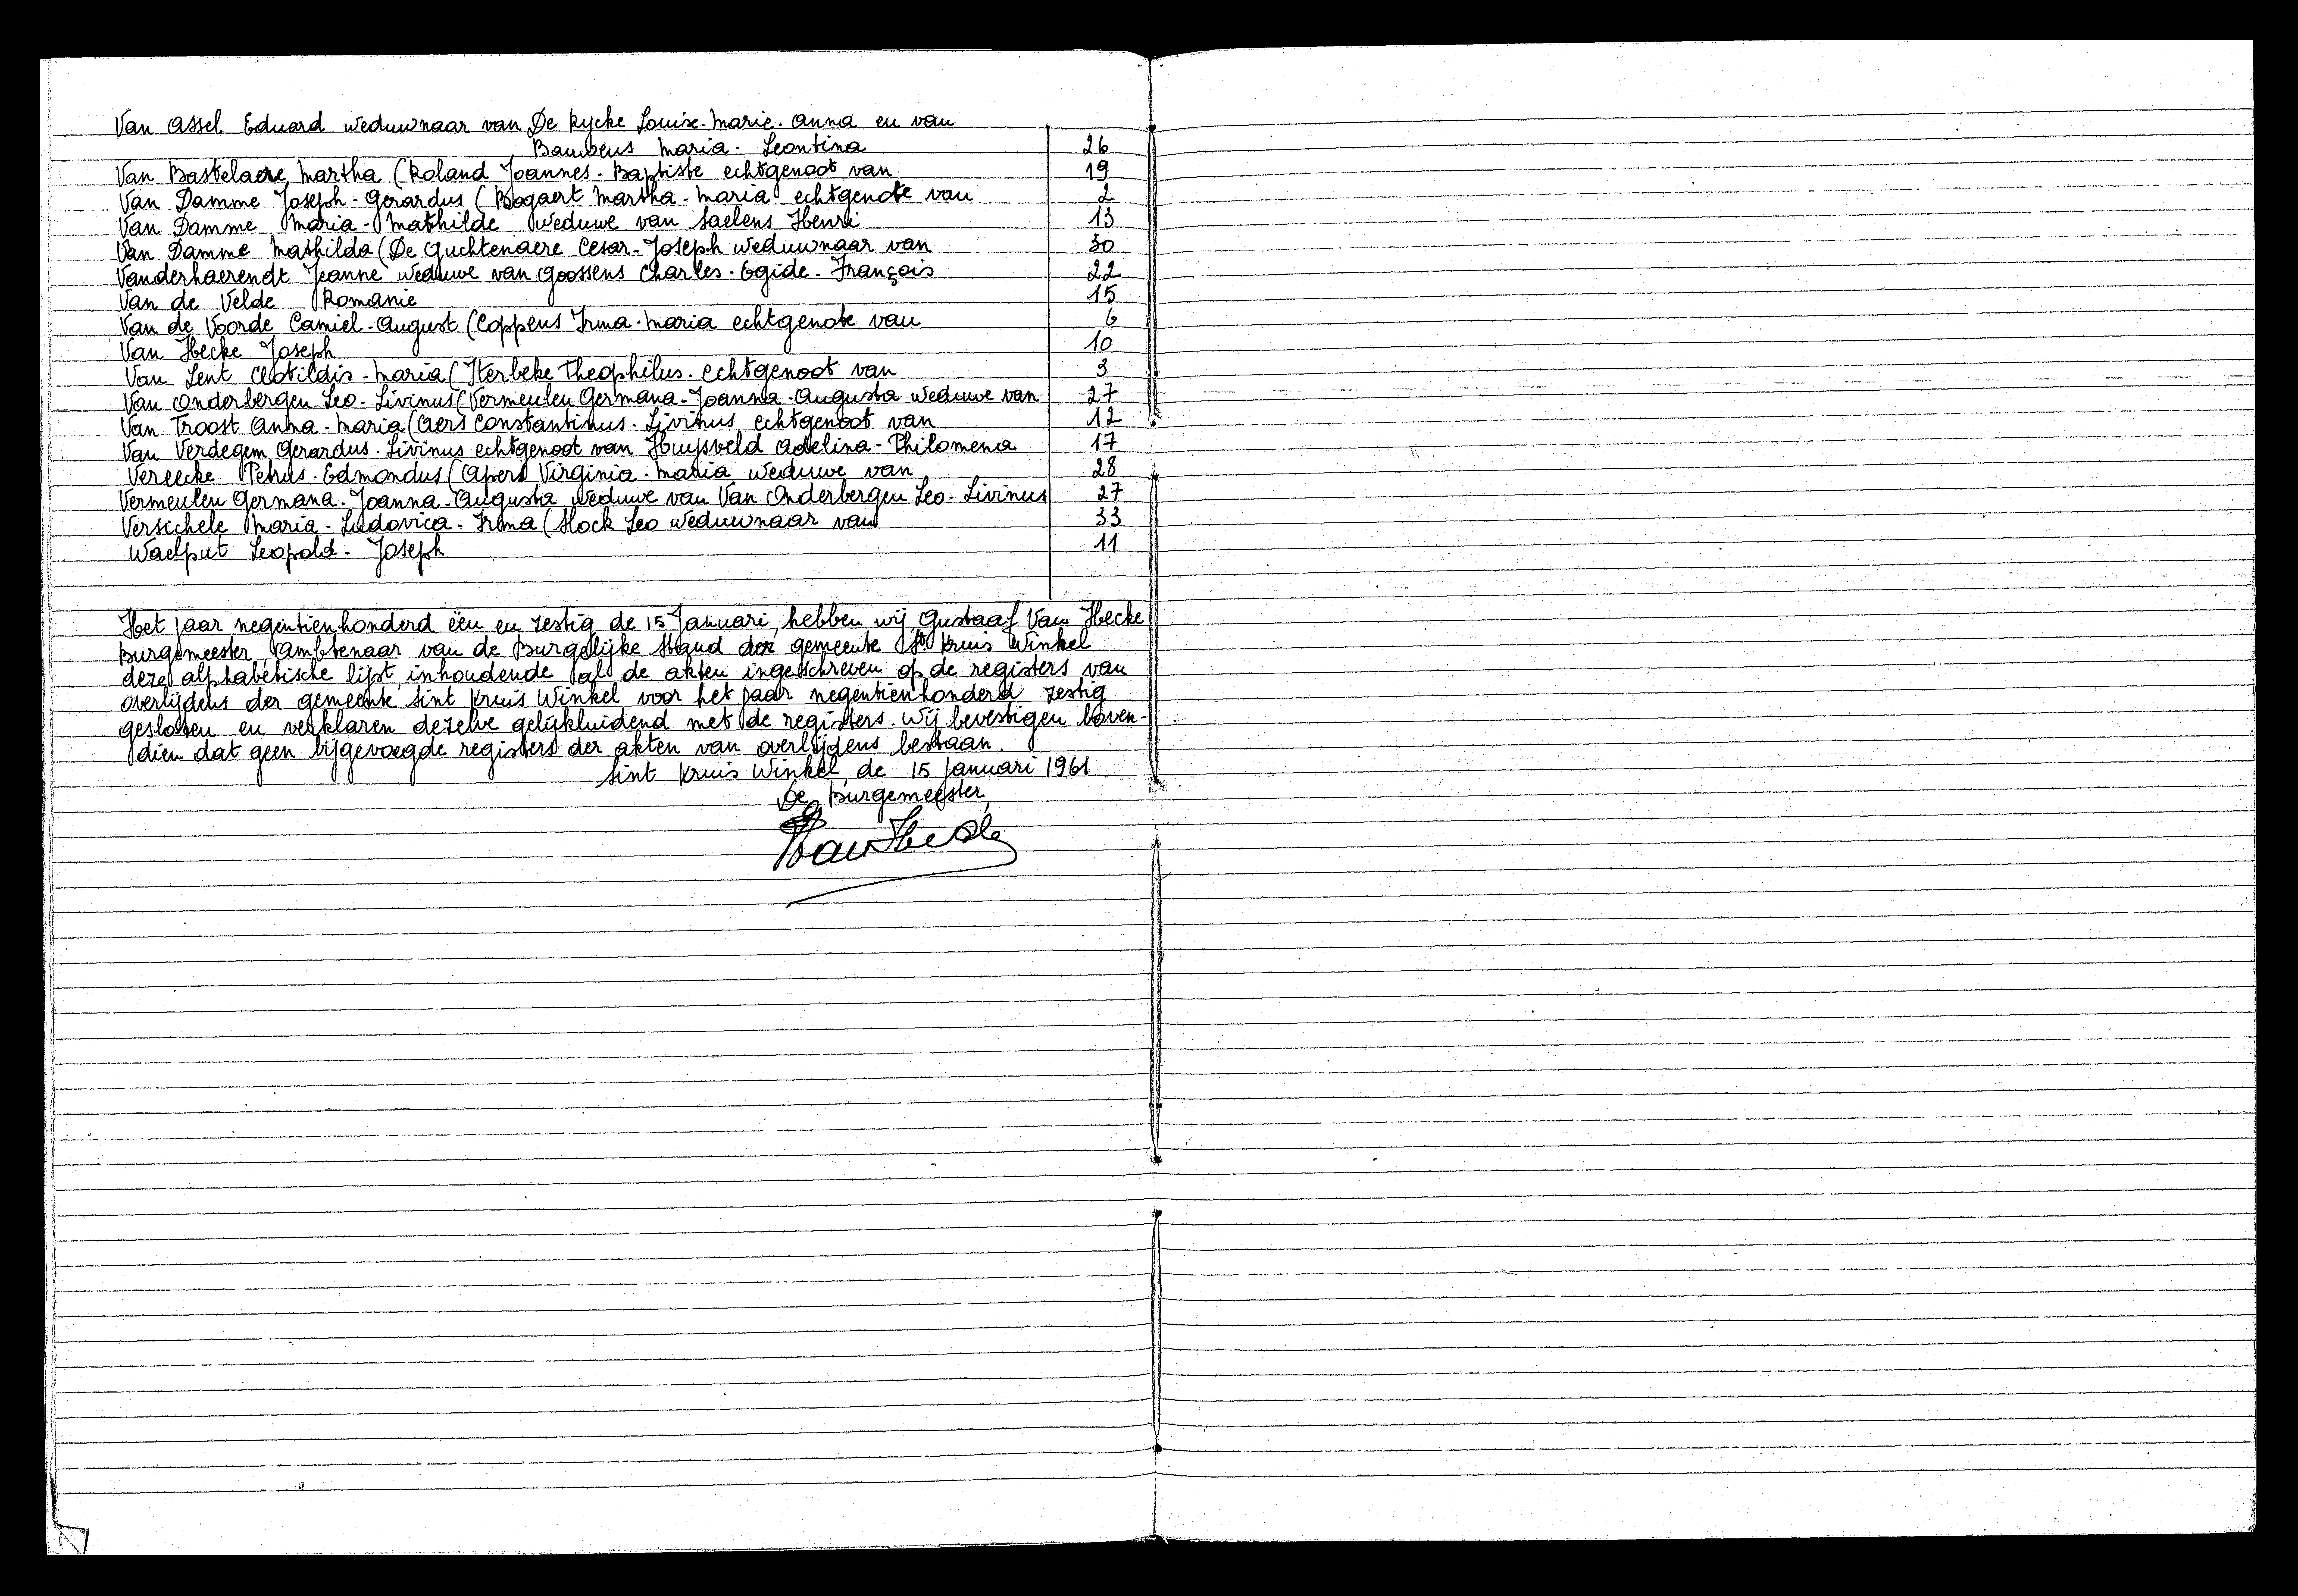 Van Assel Eduard weduwnaar van De Rycke Louise-Marie-Anna en van
Bauwens Maria-Leontina 26
Van Bastelaere Martha (Roland Joannes-Baptiste echtgenoot van 19
Van Damme Joseph-Gerardus (Bogaert Martha-Maria echtgenote van 2
Van Damme Maria-Mathilde weduwe van Saelens Henri 13
Van Damme Mathilda (De Guchtenaere Cesar-Joseph weduwnaar van 30
Vanderhaerendt Jeanne weduwe van Goossens Charles-Egide-François 22
Van de Velde Romanie 15
Van de Voorde Camiel-August (Coppens Irma-Maria echtgenote van 6
Van Hecke Joseph 10
Van Lent Clotildis-Maria (Iterbeke Theophilus echtgenoot van 3
Van Onderbergen Leo-Livinus (Vermeulen Germana-Joanna-Augusta weduwe van 27
Van Troost Anna-Maria (Aers Constantinus-Livinus echtgenoot van 12
Van Verdegem Gerardus-Livinus echtgenoot van Huysveld Adelina-Philomena 17
Vereecke Petrus-Edmondus (Apers Virginia-Maria weduwe van 28
Vermeulen Germana-Joanna-Augusta weduwe van Van Onderbergen Leo-Livinus 27
Versichele Maria-Ludovica-Irma (Stock Leo weduwnaar van 33
Waelput Leopold-Joseph 11
Het jaar negentienhonderd één en zestig de 15 Januari, hebben wij, Gustaaf Van Hecke
Burgemeester, Ambtenaar van de Burgelijke Stand der gemeente St Kruis Winkel
deze alphabetische lijst, inhoudende al de akten ingeschreven op de registers van
overlijdens der gemeente Sint Kruis Winkel voor het jaar negentienhonderd zestig
gesloten en verklaren dezelve gelijkluidend met de registers. Wij bevestigen boven-
dien dat geen bijgevoegde registers der akten van overlijdens bestaan.
Sint Kruis Winkel, de 15 Januari 1961
De Burgemeester,
Van Hecke